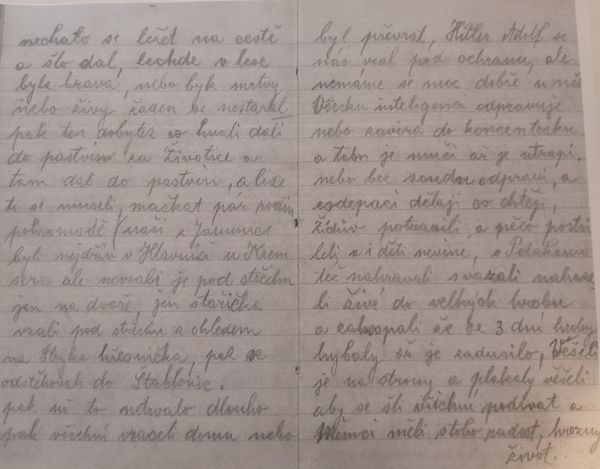 nechalo se ležet na cestě
a šlo dal, leckde v lese
byla krava, nebo byk mrtvy
nebo živy žaden se nestaral
pak ten dobytek co hnali dali
do pastvin za Životice a
tam dal do pastvin, a lide
ti se museli mačkat pár rodin
pohromadě (naši z Jamnice
byli nejdřiv v Hlavnici u
ale nevzali je pod střechu
jen na dvoře, jen stařička
vzali pod střechu z ohledem
na křesnička, pak se
odstěhovali do Štablovic.
pak už to netrvalo dlouho
pak všichni vraceli domu nebo
byl převrat, Hitler Adolf se
nás vzal pod ochranu, ale
nemáme se moc dobře u něho
Všecku inteligenci odpravuje
nebo zavira do koncentraku
a tam je muči až je utrapi.
nebo bez soudu odpravi, a
esdepaci dělaji co chtěji,
židův potravili, a
i děti nevine, s Polakama
též nahravali svazali nahaze
li živé do velkych hrobu
a zakopali že se 3 dni hroby
hybaly až je zadusilo, Věšeli
je na stromy a plakaly věšeli
aby se šli všichni podivat a
Němci měli z toho radost, hrozny
život.